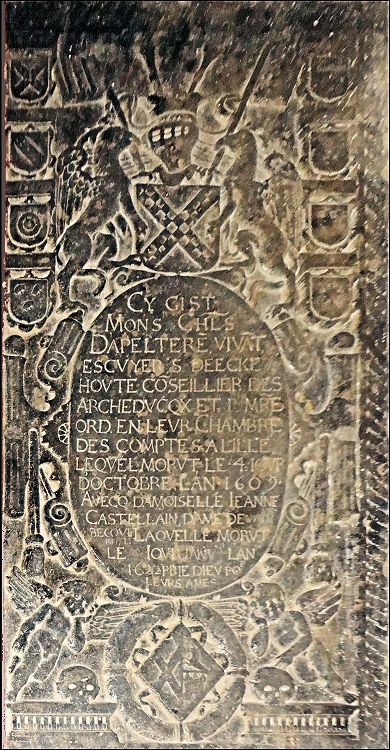 CY GIST
MONS CHLS
DAPELTERE VIVAT
ESCVYER S DEECKE
HOVTE COSEILLIER DES
ARCHEDVCQX ET Pͫ MRE
ORD EN LEVR CHAMBRE
DES COMPTES A LILLE
LEQVEL MORVT LE 4 IOVR
DOCTOBRE LAN 1609
AVECQ DAMOISELLE IEANNE
CASTELLAIN DAME DE
BECQVE LAQVELLE MORVT
LE IOVR LAN
PRIE DIEV PO
LEVRS AMES